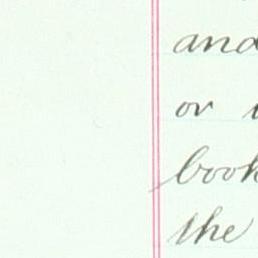 and
or
book
the